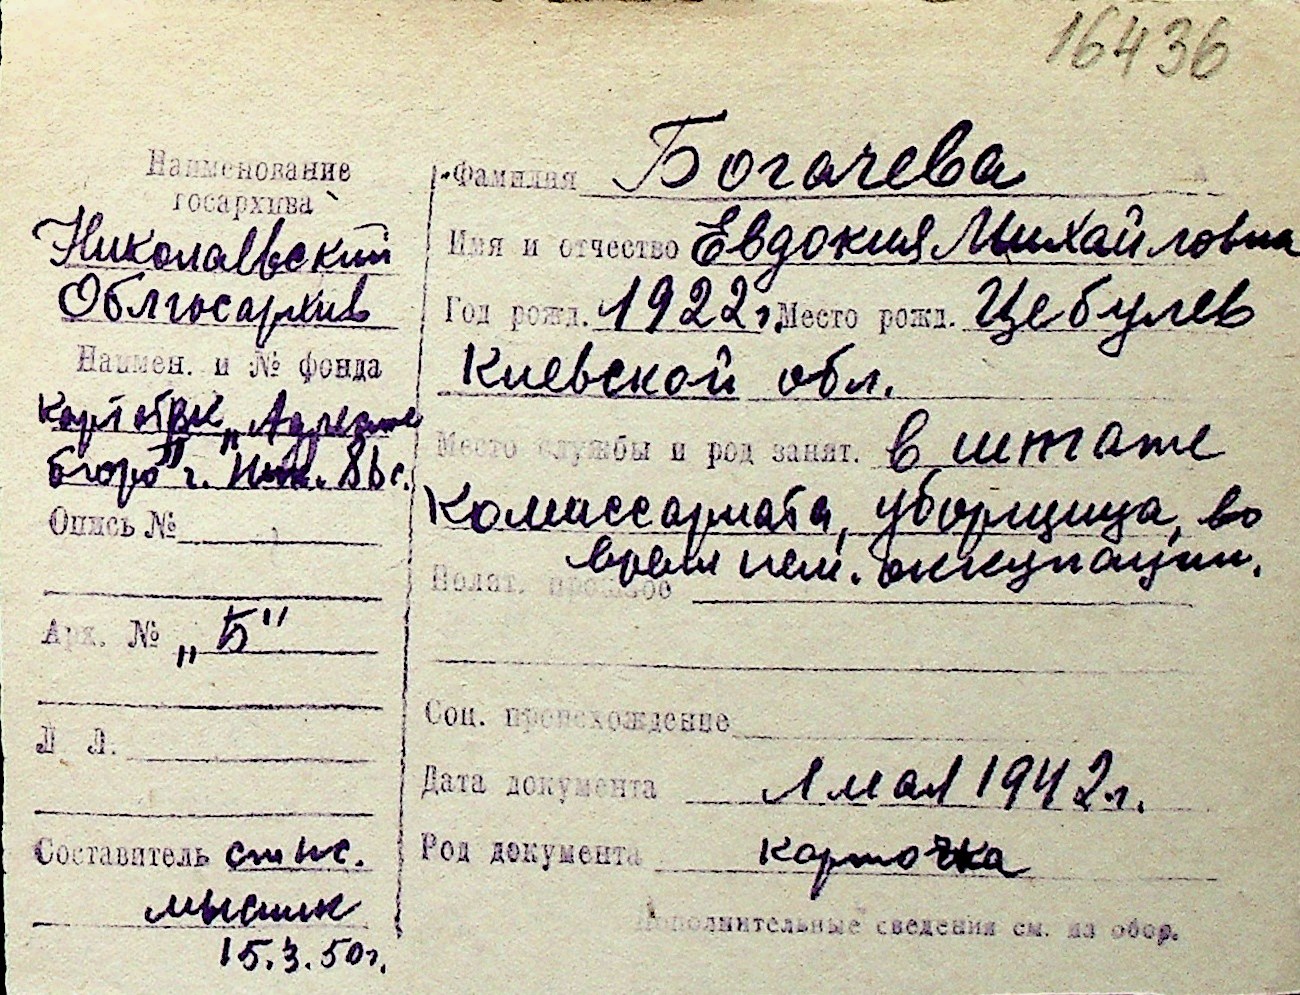 16436
Наименование
госархива
Николаевский
Облгосархив
Наимен. и № фонда
картотека „Адресное
бюро" г. Ник.
Опись №
Арх. № „Б"
Л Л.
Составитель ст. нс.
15.3.50г.
Фамилия Богачева
Имя и отчество Евдокия Михайловна
Год рожд. 1922г. Место рожд. Цебулев
Киевской обл.
Место службы и род занят. в штате
Комиссариата, уборщица, во
время нем. оккупации.
Полит. прошлое
Соц. происхождение
Дата документа 1 мая 1942г.
Род документа карточка
Дополнительные сведения см. на обор.